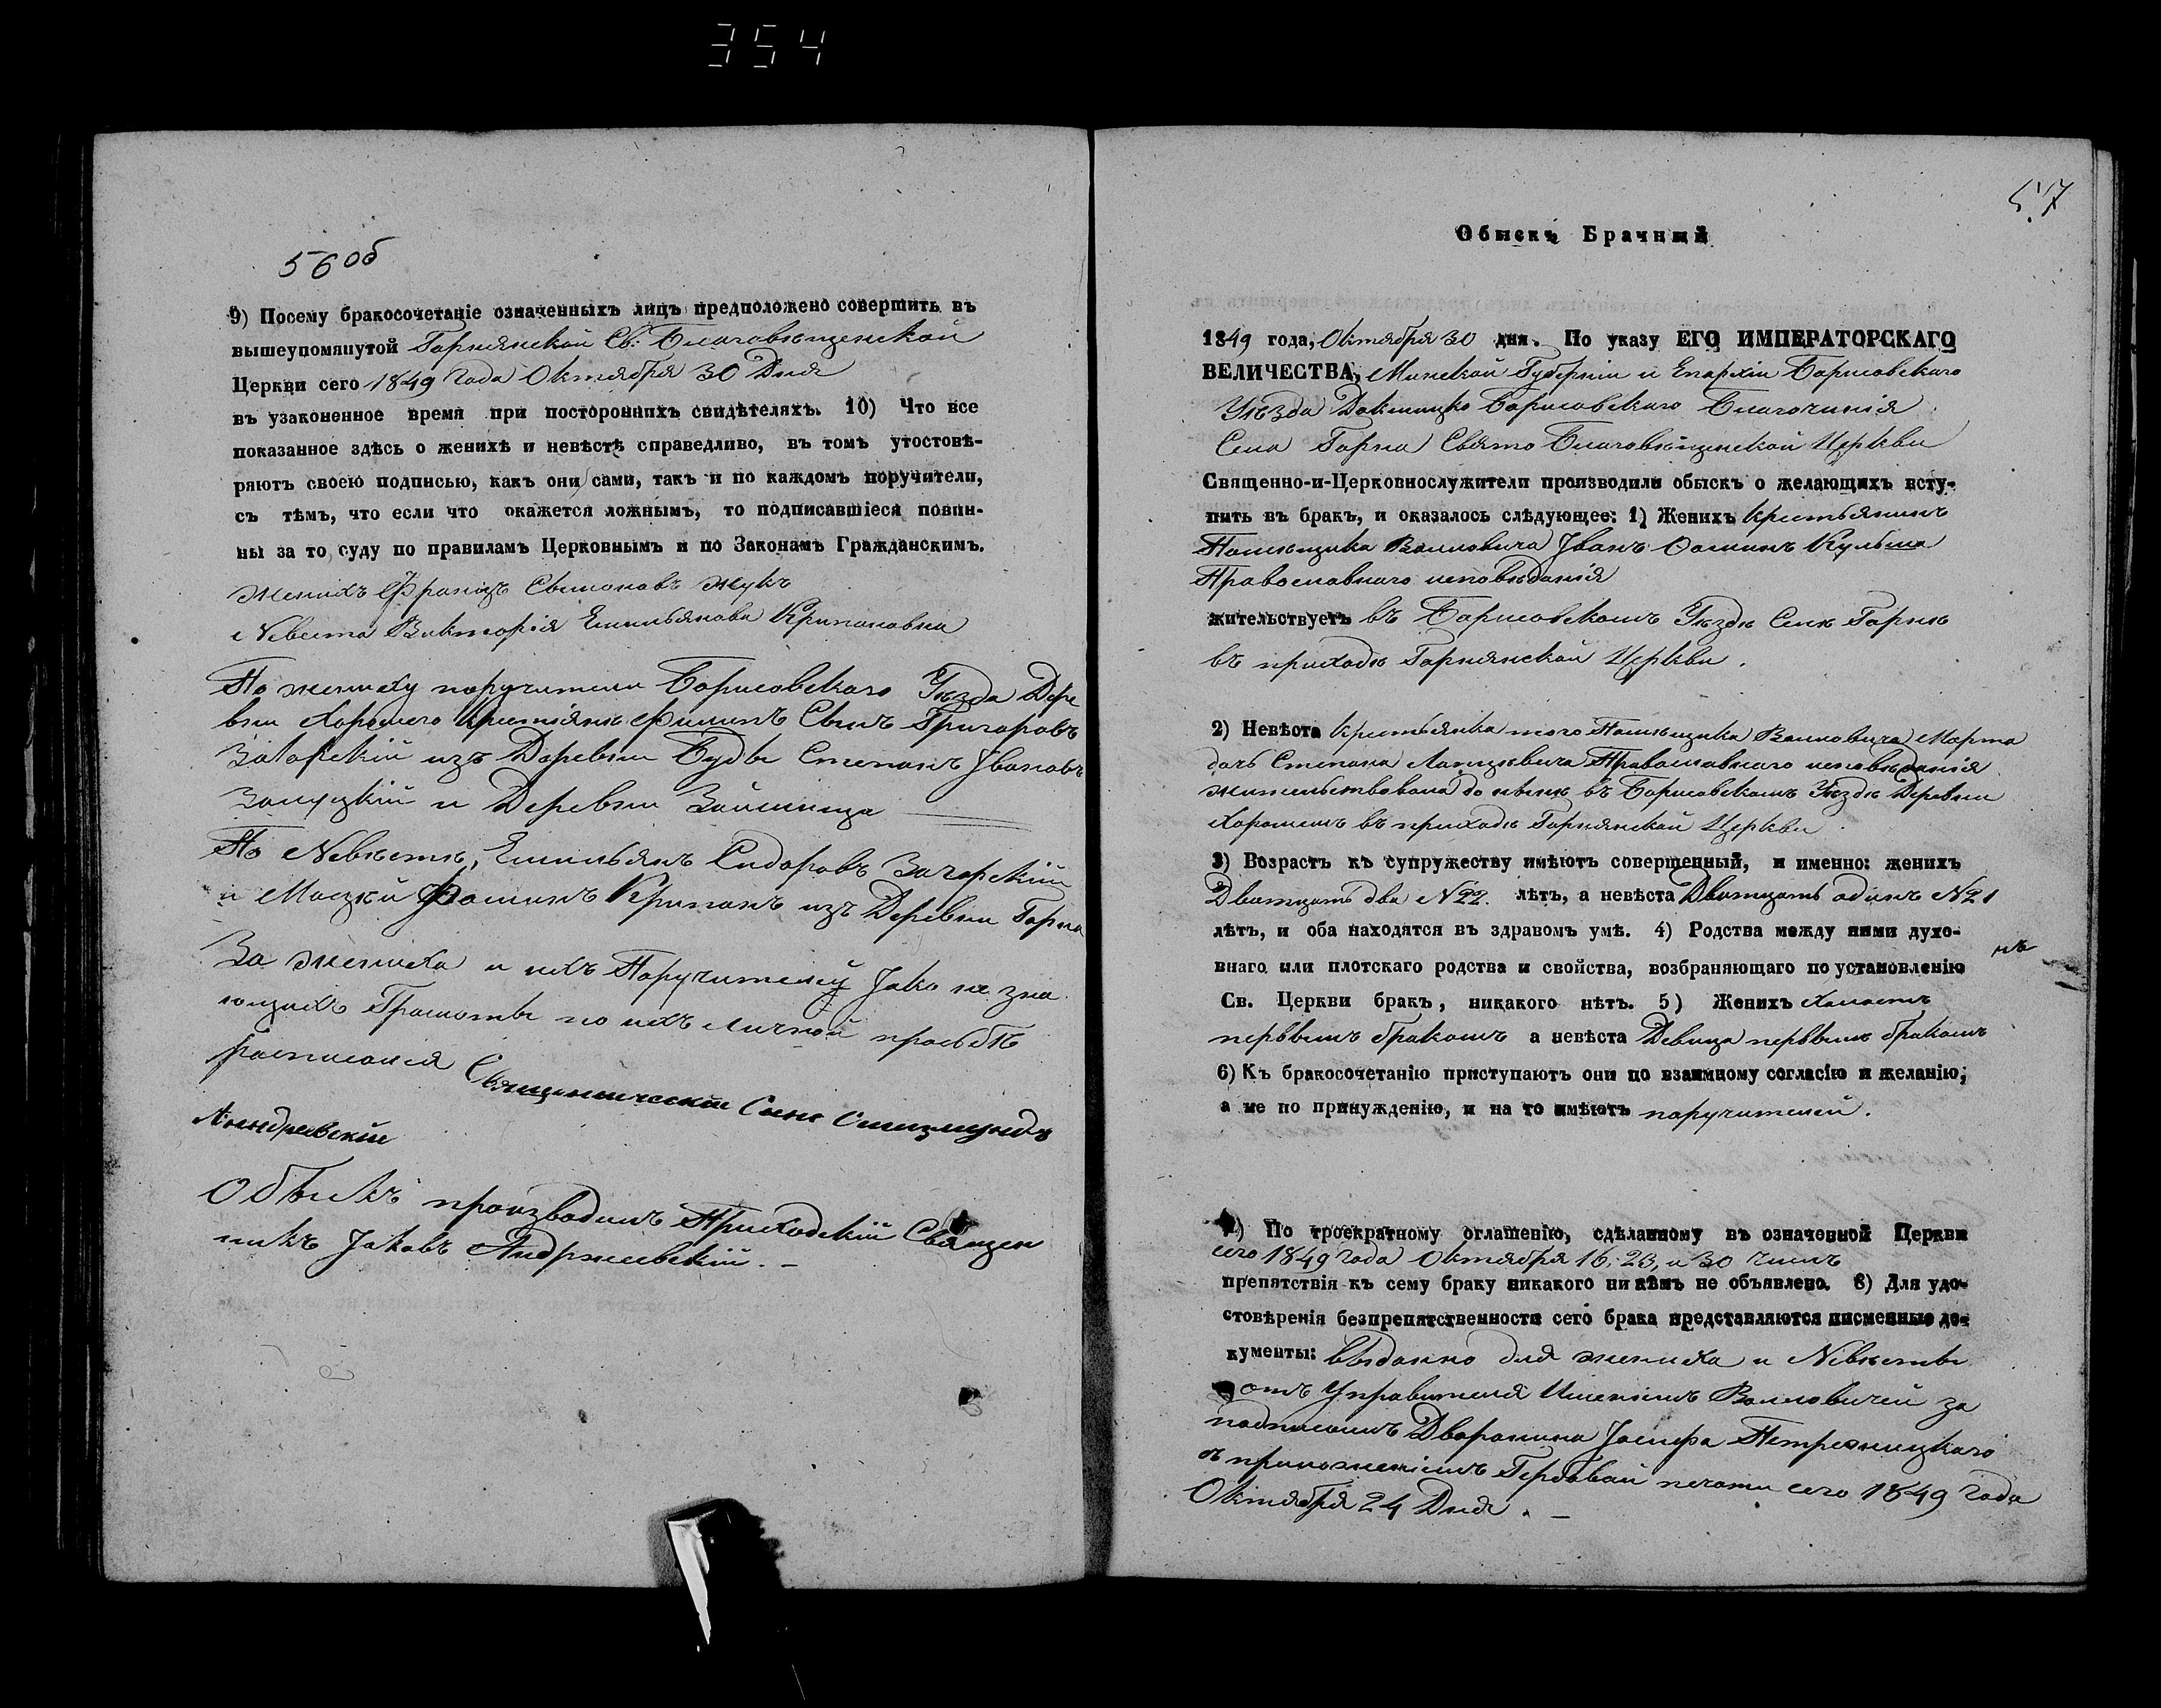 354
56 об
9) Посему бракосочетаніе означенныхъ лицъ предположено совершить въ
вышеупомянутой Горнянской Св: Благовѣщенской
Церкви сего 1849 Года Октября 30 Дня
въ узаконенное время при постороннихъ свидѣтеляхъ. 10) Что все
показанное здѣсь о женихѣ и невѣстѣ справедливо, въ томъ утостовѣ-
ряютъ своею подписью, какъ они сами, такъ и по каждомъ поручители,
съ тѣмъ, что если что окажется ложнымъ, то подписавшіеся повин-
ны за то суду по правиламъ Церковнымъ и по Законамъ Гражданскимъ.
Женихъ Францъ Жукъ
Невеста Викторія Емильянова
По жениху поручители Борисовскаго Уѣзда Дере
вни Хорошего Филипъ Сынъ Григоровъ
Загорскій изъ Деревни Буды Степанъ Ивановъ
и Деревни
По Невѣстѣ, Емильянъ Сидоровъ Загорскій
и Фоминъ изъ Деревни Горна
За жениха и ихъ Поручителей Јако не зна
ющихъ Грамоты по ихъ личной прозьбѣ
росписался Священническій Сынъ
Андреевскій
Обыскъ производилъ Приходскій Священ
никъ Јаковъ Андржеевскій. –
57
Обыскъ Брачный
1849 года, Октября 30 дня. По указу ЕГО ИМПЕРАТОРСКАГО
ВЕЛИЧЕСТВА, Минской Губерніи и Епархіи Борисовскаго
Уѣзда Докшицко Борисовскаго Благочинія
Села Горна Свято Благовѣщенской Церкви
Священно-и-Церковнослужители производили обыскъ о желающихъ всту-
пить въ брак, и оказалось слѣдующее: 1) Женихъ Крестьянинъ
Помѣщика Воловича Јванъ Фоминъ Кульша
Православнаго исповѣданія
жительствуетъ въ Борисовскомъ Уѣздѣ Селѣ Горнѣ
въ приходѣ Горнянской Церкви.
2) Невѣста Крестьянка того Помѣщика Воловича Марта
дочь Степана Православнаго исповѣданія
жительствовала до нынѣ въ Борисовскомъ Уѣздѣ Деревни
Хорошемъ въ приходѣ Горнянской Церкви.
3) Возрастъ къ супружеству имѣютъ совершенный, и именно: женихъ
Дватцать два N 22. лѣтъ, а невѣста Дватцать одинъ N 21
лѣтъ, и оба находятся въ здравомъ умѣ. 4) Родства между ними духо-
внаго или плотскаго родства и свойства, возбраняющаго по установленію
Св. Церкви бракъ, никакого нѣтъ. 5) Женихъ Холостъ
первымъ бракомъ а невѣста Девица первымъ бракомъ
6) Къ бракосочетанію приступаютъ они по взаимному согласію и желанію,
а не по принужденію, и на то имѣютъ поручителей.
7) По троекратному оглашенію, сдѣланному въ означенной Церкви
сего 1849 года Октября 16, 23, и 30 чиселъ
препятствія къ сему браку никакого ни кѣмъ не объявлено. 8) Для удо-
стовѣренія безпрепятственности сего брака представляются писменные до-
кументы: Выданно для жениха и Невѣсты
отъ Управителя Имѣніемъ Воловичей за
подписомъ Дворянина Јосифа
съ приложеніемъ Гербовой печати сего 1849 Года
Октября 24 Дня. –